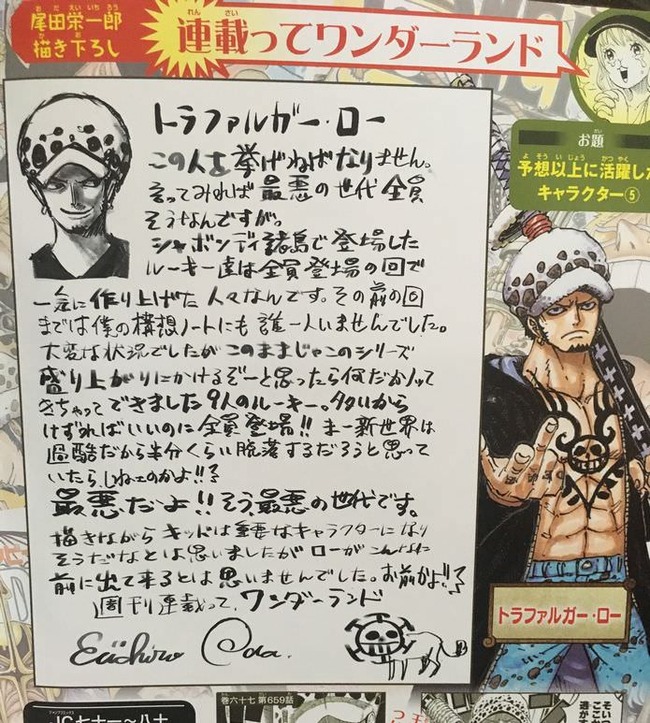 尾田栄一郎
描き下ろし
連載ってワンダーランド
お題
予想以上に活躍した
キャラクター⑤
トラファルガー・ロー
この人を挙げねばなりません。
言ってみれば最悪の世代全員
そうなんですが。
シャボンディ諸島で登場した
ルーキー達は全員登場の回で
一気に作り上げた人々なんです。その前の回
までは僕の構想ノートにも誰一人いませんでした。
大変な状況でしたがこのままじゃこのシリーズ
盛り上がりにかけるぞーと思ったら何だかノッて
きちゃってできました9人のルーキー。多いから
けずればいいのに全員登場!! まー新世界は
過酷だから半分くらい脱落するだろうと思って
いたら、しねェのかよ!!
最悪だよ!!そう最悪の世代です。
描きながらキッドは重要なキャラクターになり
そうだなとは思いましたがローがこんなに
前に出て来るとは思いませんでした。お前かよ!!
週刊連載って、ワンダーランド
Eiichiro Oda.
トラファルガー・ロー
JC七十一〜八十
巻六十七 第659話